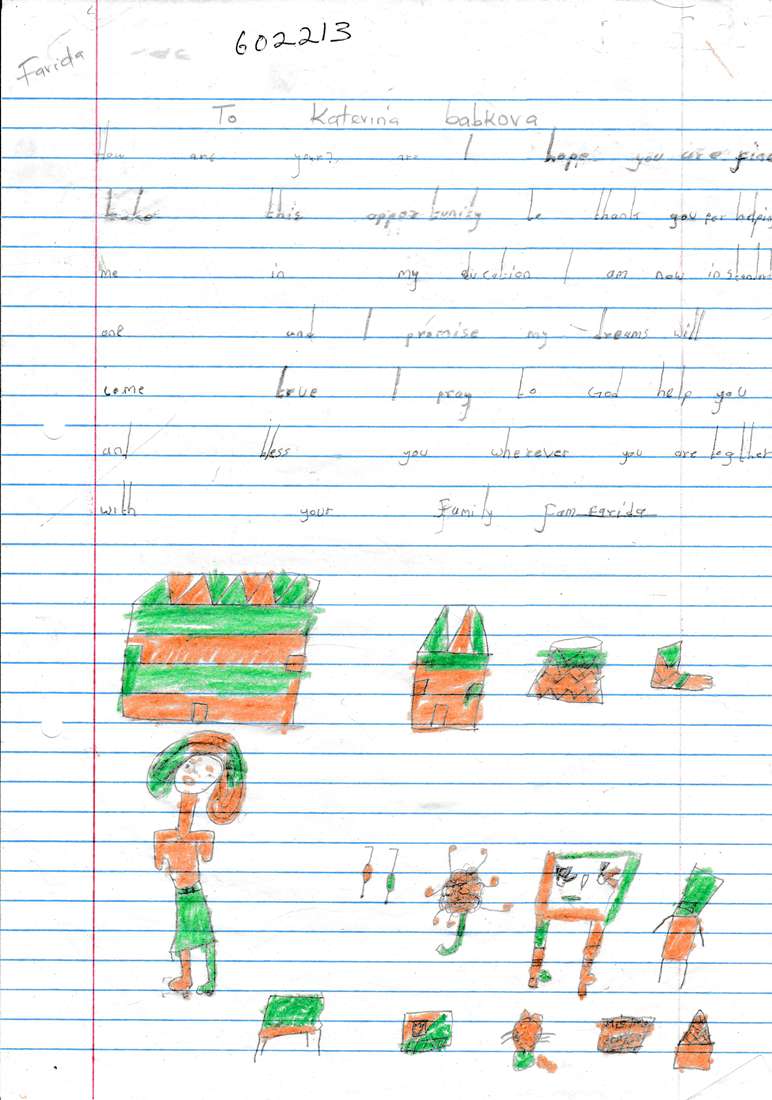 602213
Farida
To Katerina babkova
How are your? are I hope you are fine
take this opportunity to thank you for helping
me in my education I am now in standard
one and I promise my dreams will
come true I pray to God help you
and bless you wherever you are together
with your Family Fam Farida